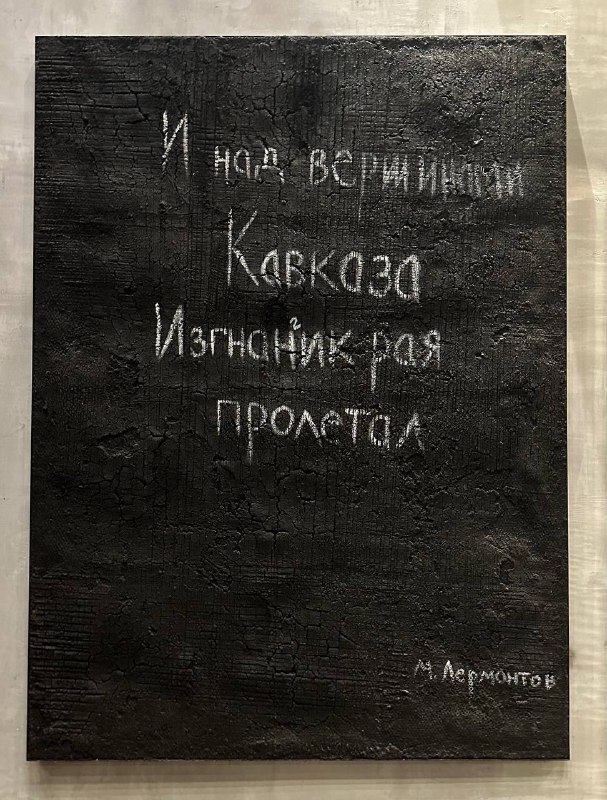 И над вершинами
Кавказа
Изгнан²ик рая
пролетал
М. Лермонтов